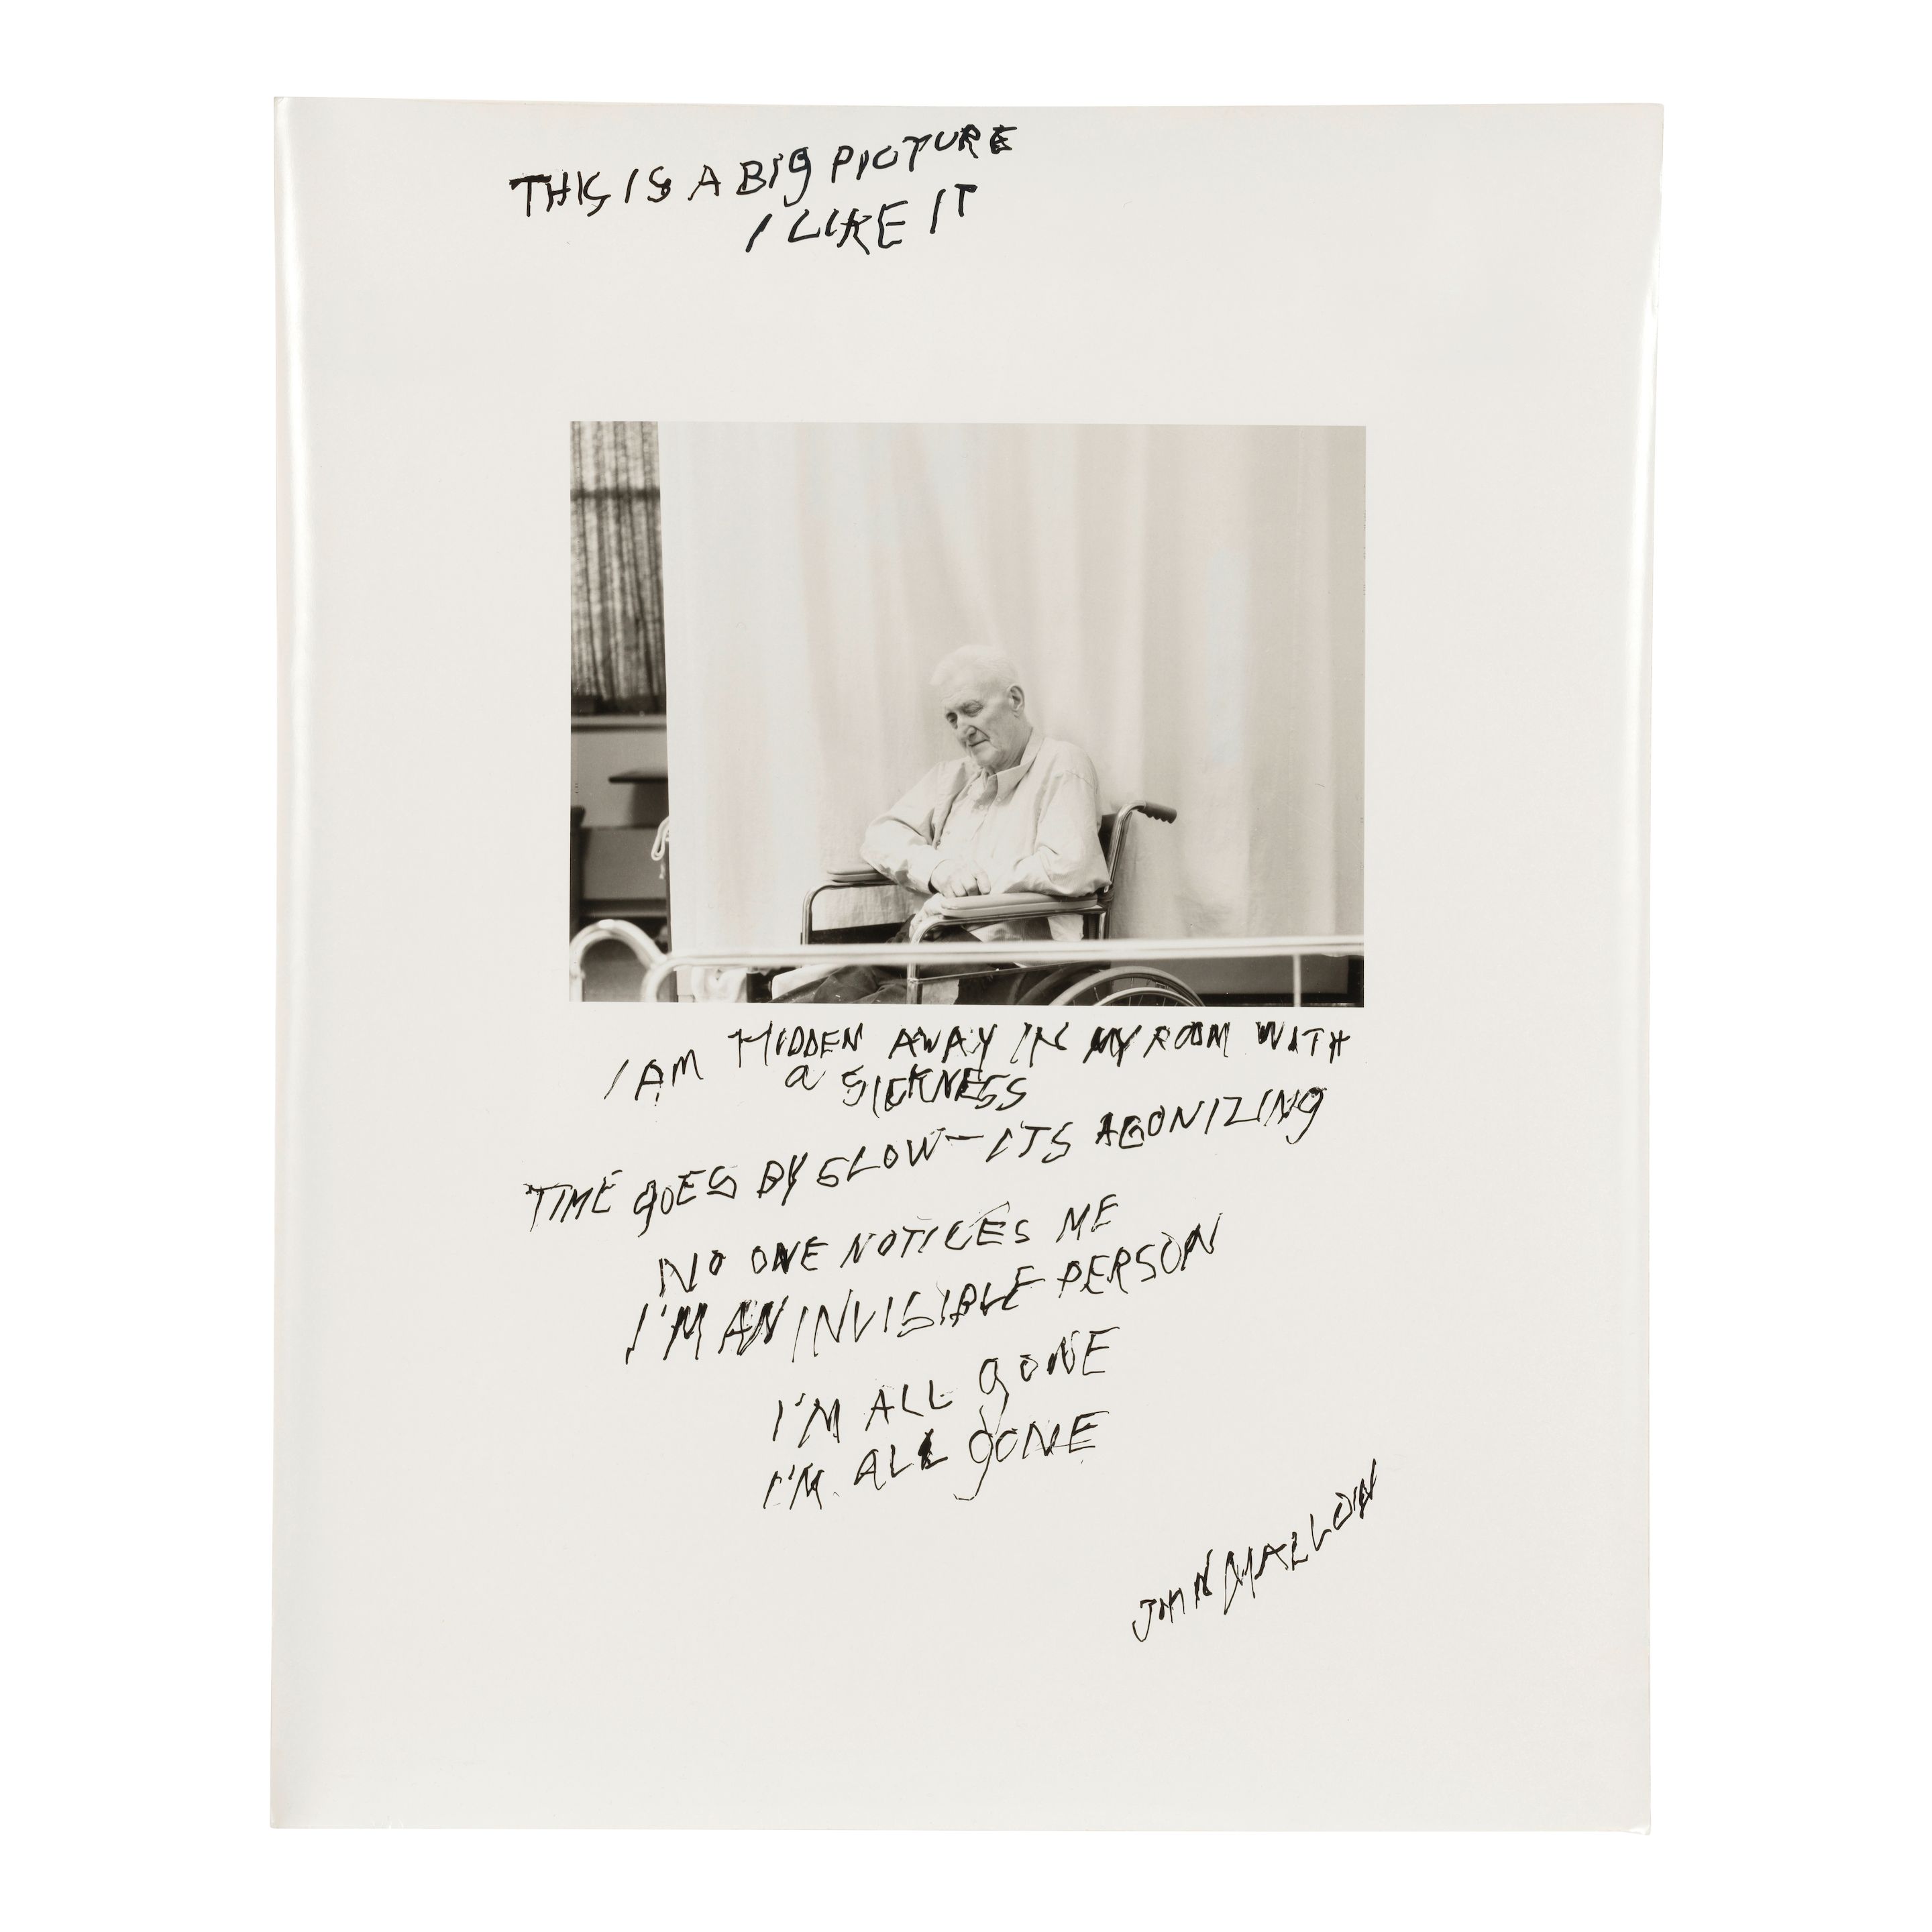 THIS IS A BIg PICTURE
I LIKE IT
I AM HIDDEN AWAY IN MY ROOM WITH
a SICKNESS
TIME gOES BY SLOW - ITS AGONIZINg
NO ONE NOTICES ME
I'M AN INVISIBLE PERSON
I'M ALL gONE
I'M ALL gONE
JOHN MALLOW